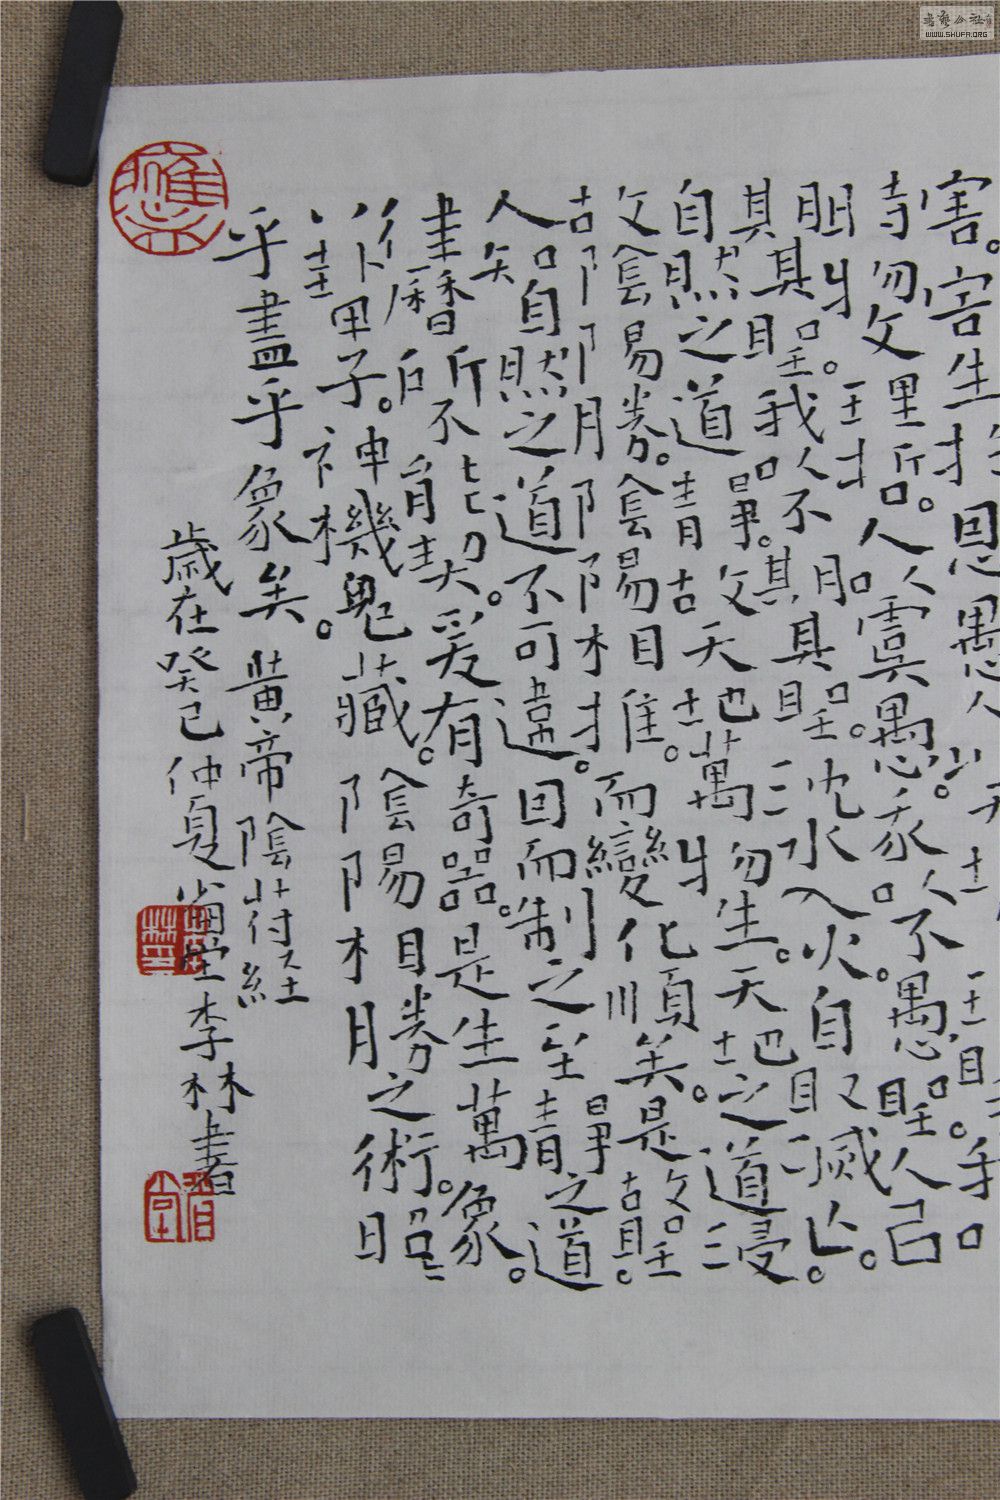 害。害生於恩愚人以天地文理聖。我以
時物文理哲。人以虞愚。我以不愚聖。人以
期其聖。我以不期其聖。沈水入火。自取滅亡。
自然之道靜。故天地萬物生。天地之道浸。
故陰陽勝。陰陽相推。而變化順矣。是故聖
人知自然之道不可違。因而制之至靜之道
律曆所不能契。爰有奇器。是生萬象。
八卦甲子。神機鬼藏。陰陽相勝之術。昭昭
乎盡乎象矣。黃帝陰符經
歲在癸巳仲夏堂李林書
WWW.SHUFA.ORG